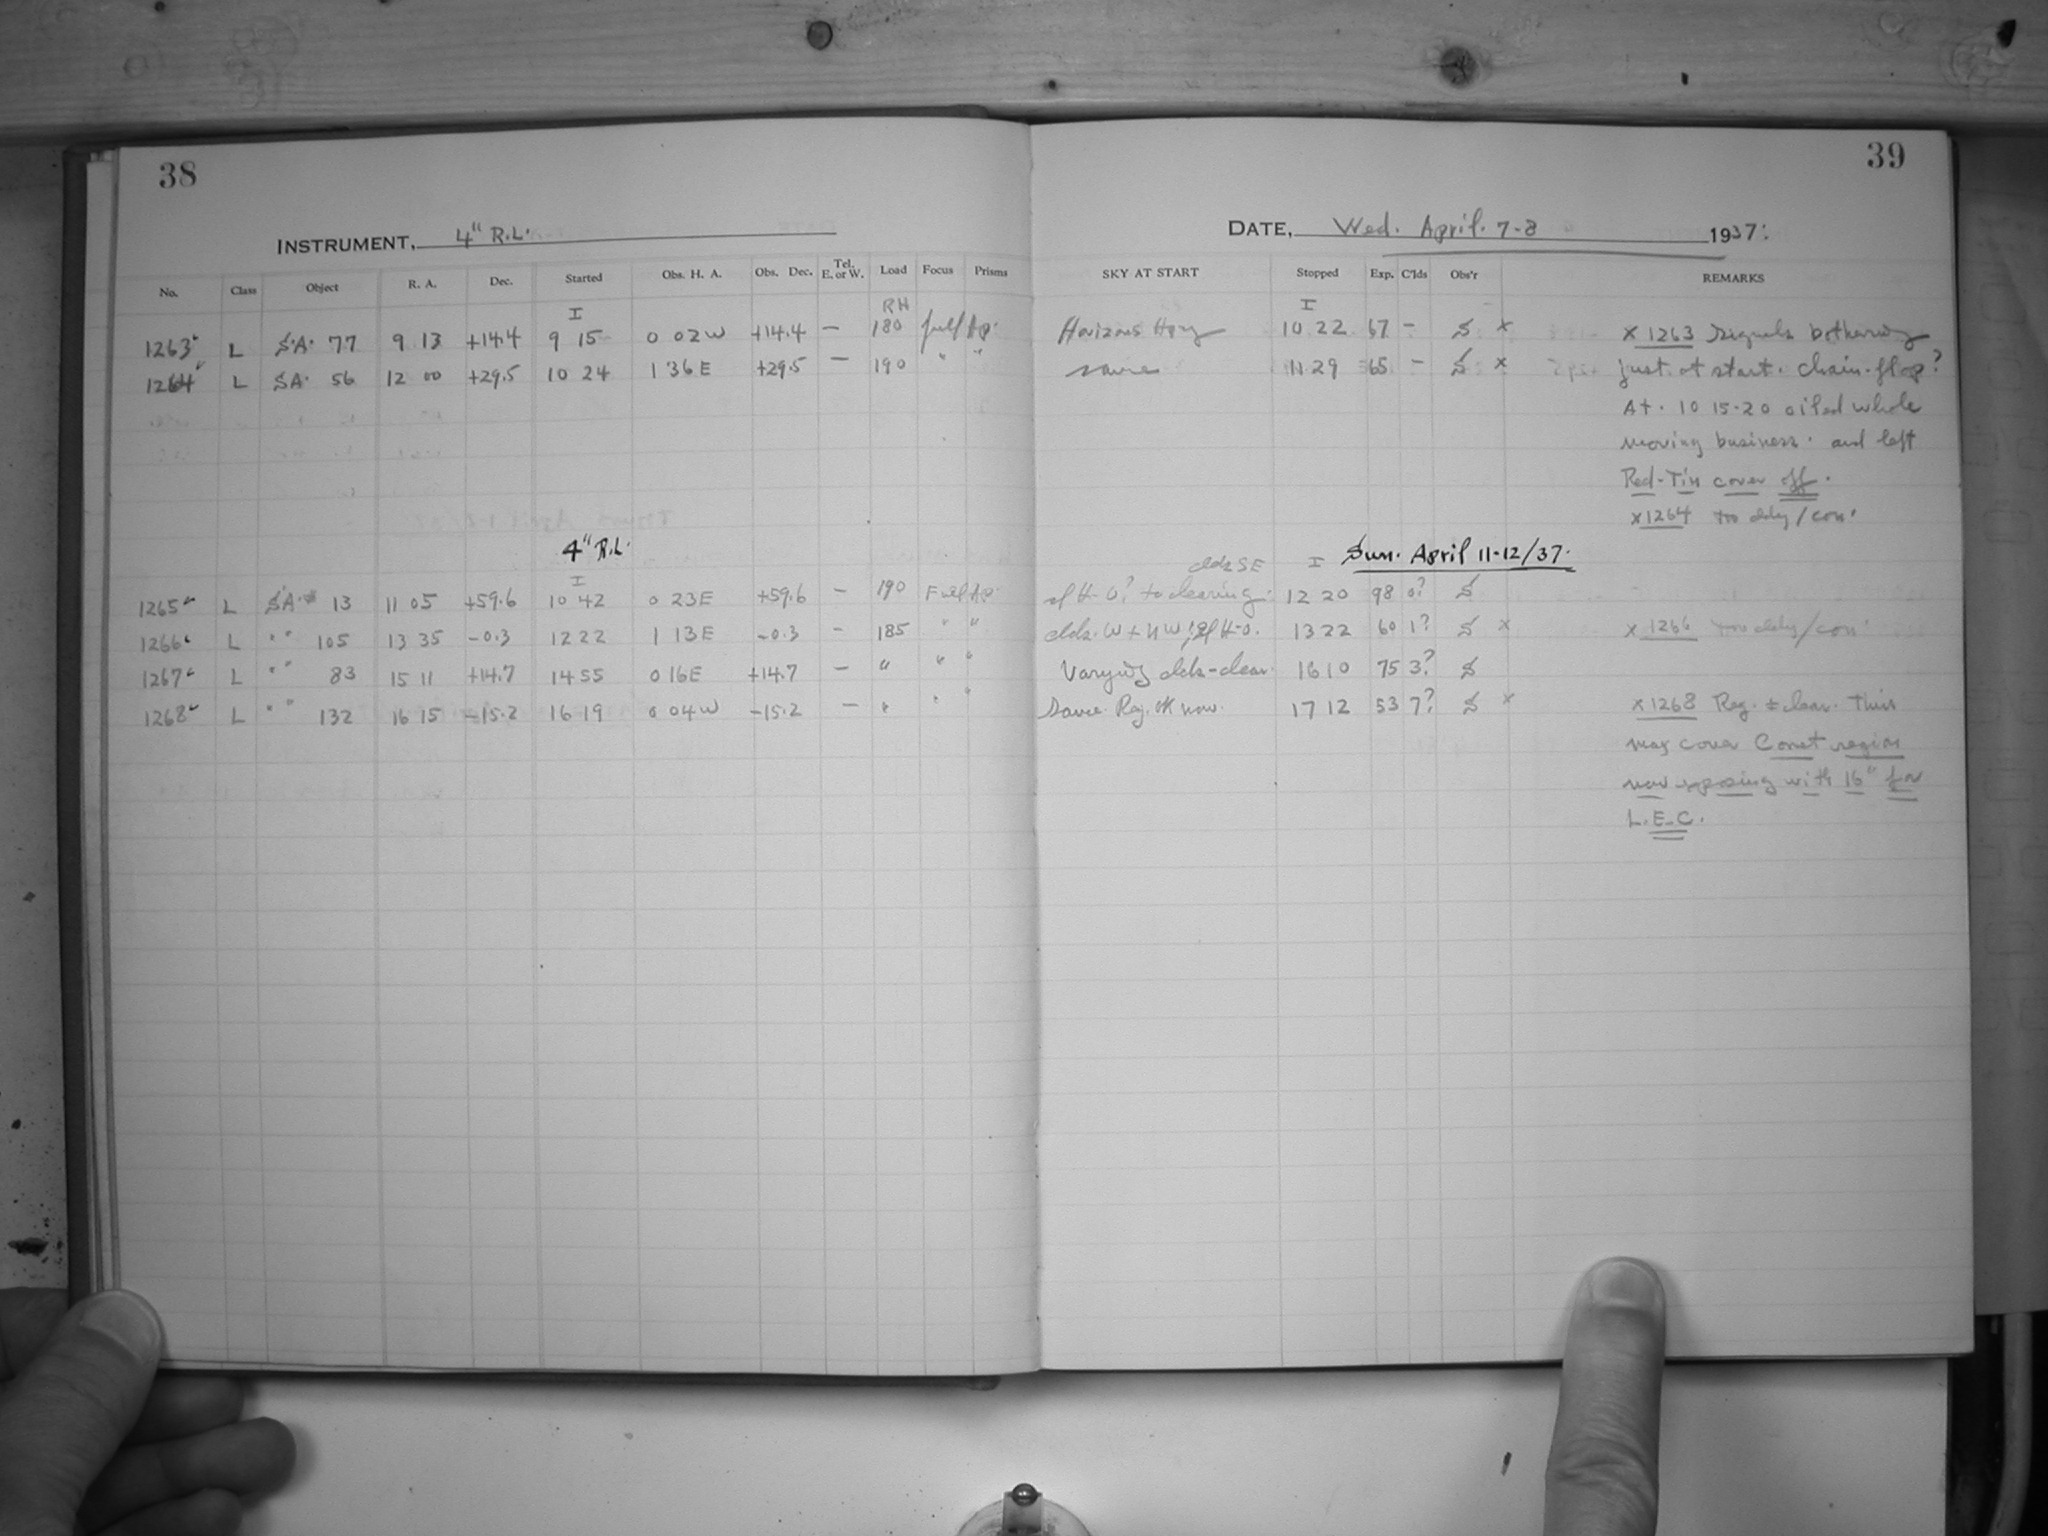 38
39
INSTRUMENT, 4" R.L.
DATE, Wed. April. 7-8 1937.
No. Class Object R. A. Dec. Started Obs. H. A. Obs. Dec. Tel. E. or W. Load Focus Prisms SKY AT START Stopped Exp. C'lds Obs'r REMARKS
I RH I
1263 L S.A. 77 9 13 +14.4 9 15 0 02 W +14.4 — 180 full Ap. Horizons Hazy 10 22 67 - S x x 1263 signals bothering
1264 L SA. 56 12 00 +29.5 10 24 1 36 E +29.5 — 190 " " same 11 29 65 - S x just at start. chain-flop?
At. 10 15-20 oiled whole
moving business. and left
Red-Tin cover off.
x 1264 too /con'
4" R.L. Sun. April 11-12/37.
I cldsSE I
1265 L SA. 13 11 05 +59.6 10 42 0 23E +59.6 - 190 Full Ap. 0? to clearing. 12 20 98 0? S
1266 L " " 105 13 35 -0.3 12 22 1 13E -0.3 - 185 " " clds. W + NW 13 22 60 1? S x x 1266 too /con'
1267 L " " 83 15 11 +14.7 14 55 0 16E +14.7 — " " " Varying clds-clear. 16 10 75 3? S
1268 L " " 132 16 15 -15.2 16 19 0 04W -15.2 — " " " same. Reg. OK now. 17 12 53 7? S x x 1268 Reg. ± clear. This
may cover Comet region
now exposing with 16" for
L.E.C.